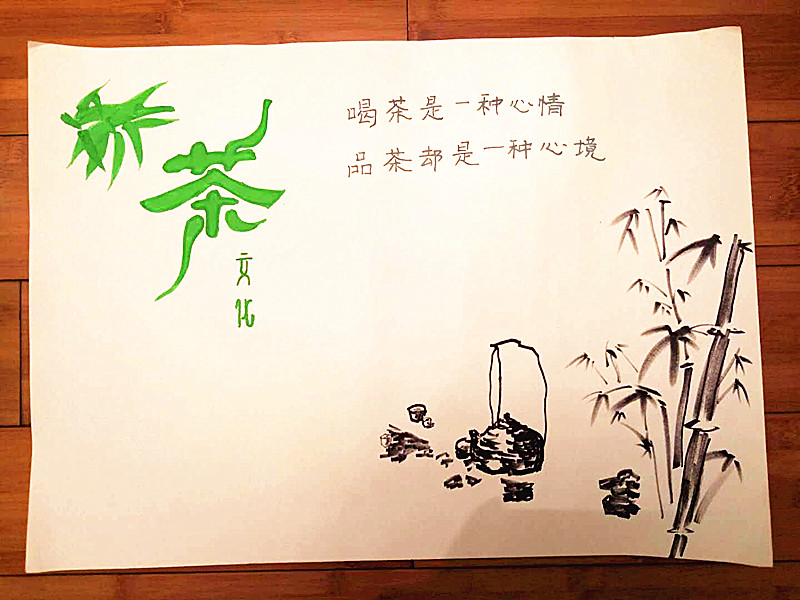 茶
文化
喝茶是一种心情
品茶却是一种心境